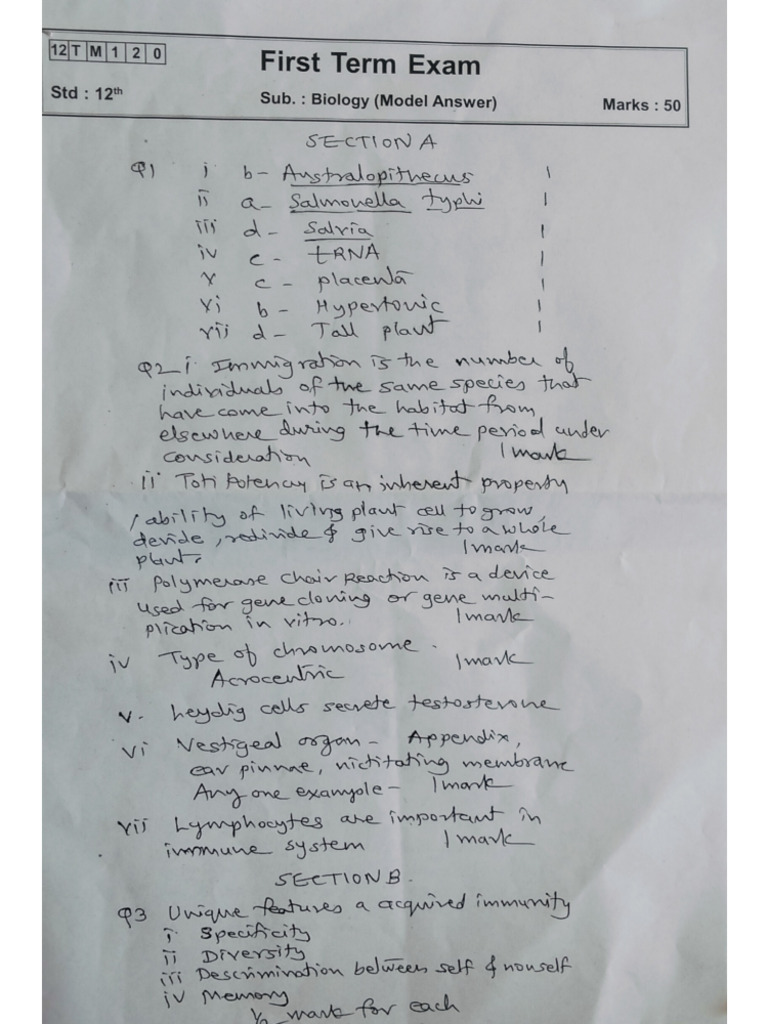 12TM120
First Term Exam
Std : 12th
Sub. : Biology (Model Answer)
Marks : 50
SECTION A
Q1 i b- Australopithecus 1
ii a- Salmonella typhi 1
iii d- Salvia 1
iv c- tRNA 1
v c- placenta 1
vi b- Hypertonic 1
vii d- Tall plant 1
Q2 i Immigration is the number of
individuals of the same species that
have come into the habitat from
elsewhere during the time period under
consideration 1 mark
ii Toti Potency is an inherent property
/ability of living plant cell to grow,
devide, redivide & give rise to a whole
plant. 1 mark
iii Polymerase Chair Reaction is a device
used for gene cloning or gene multi-
plication in vitro. 1 mark
iv Type of chromosome. 1 mark
Acrocentric
v. Leydig cells secrete testosterone
vi Vestigeal organ - Appendix,
ear pinnae, nictitating membrane
Any one example - 1 mark
vii Lymphocytes are important in
immune system 1 mark
SECTION B.
Q3 Unique features a acquired immunity
i Specificity
ii Diversity
iii Descrimination between self & nonself
iv Memory
1/2 mark for each